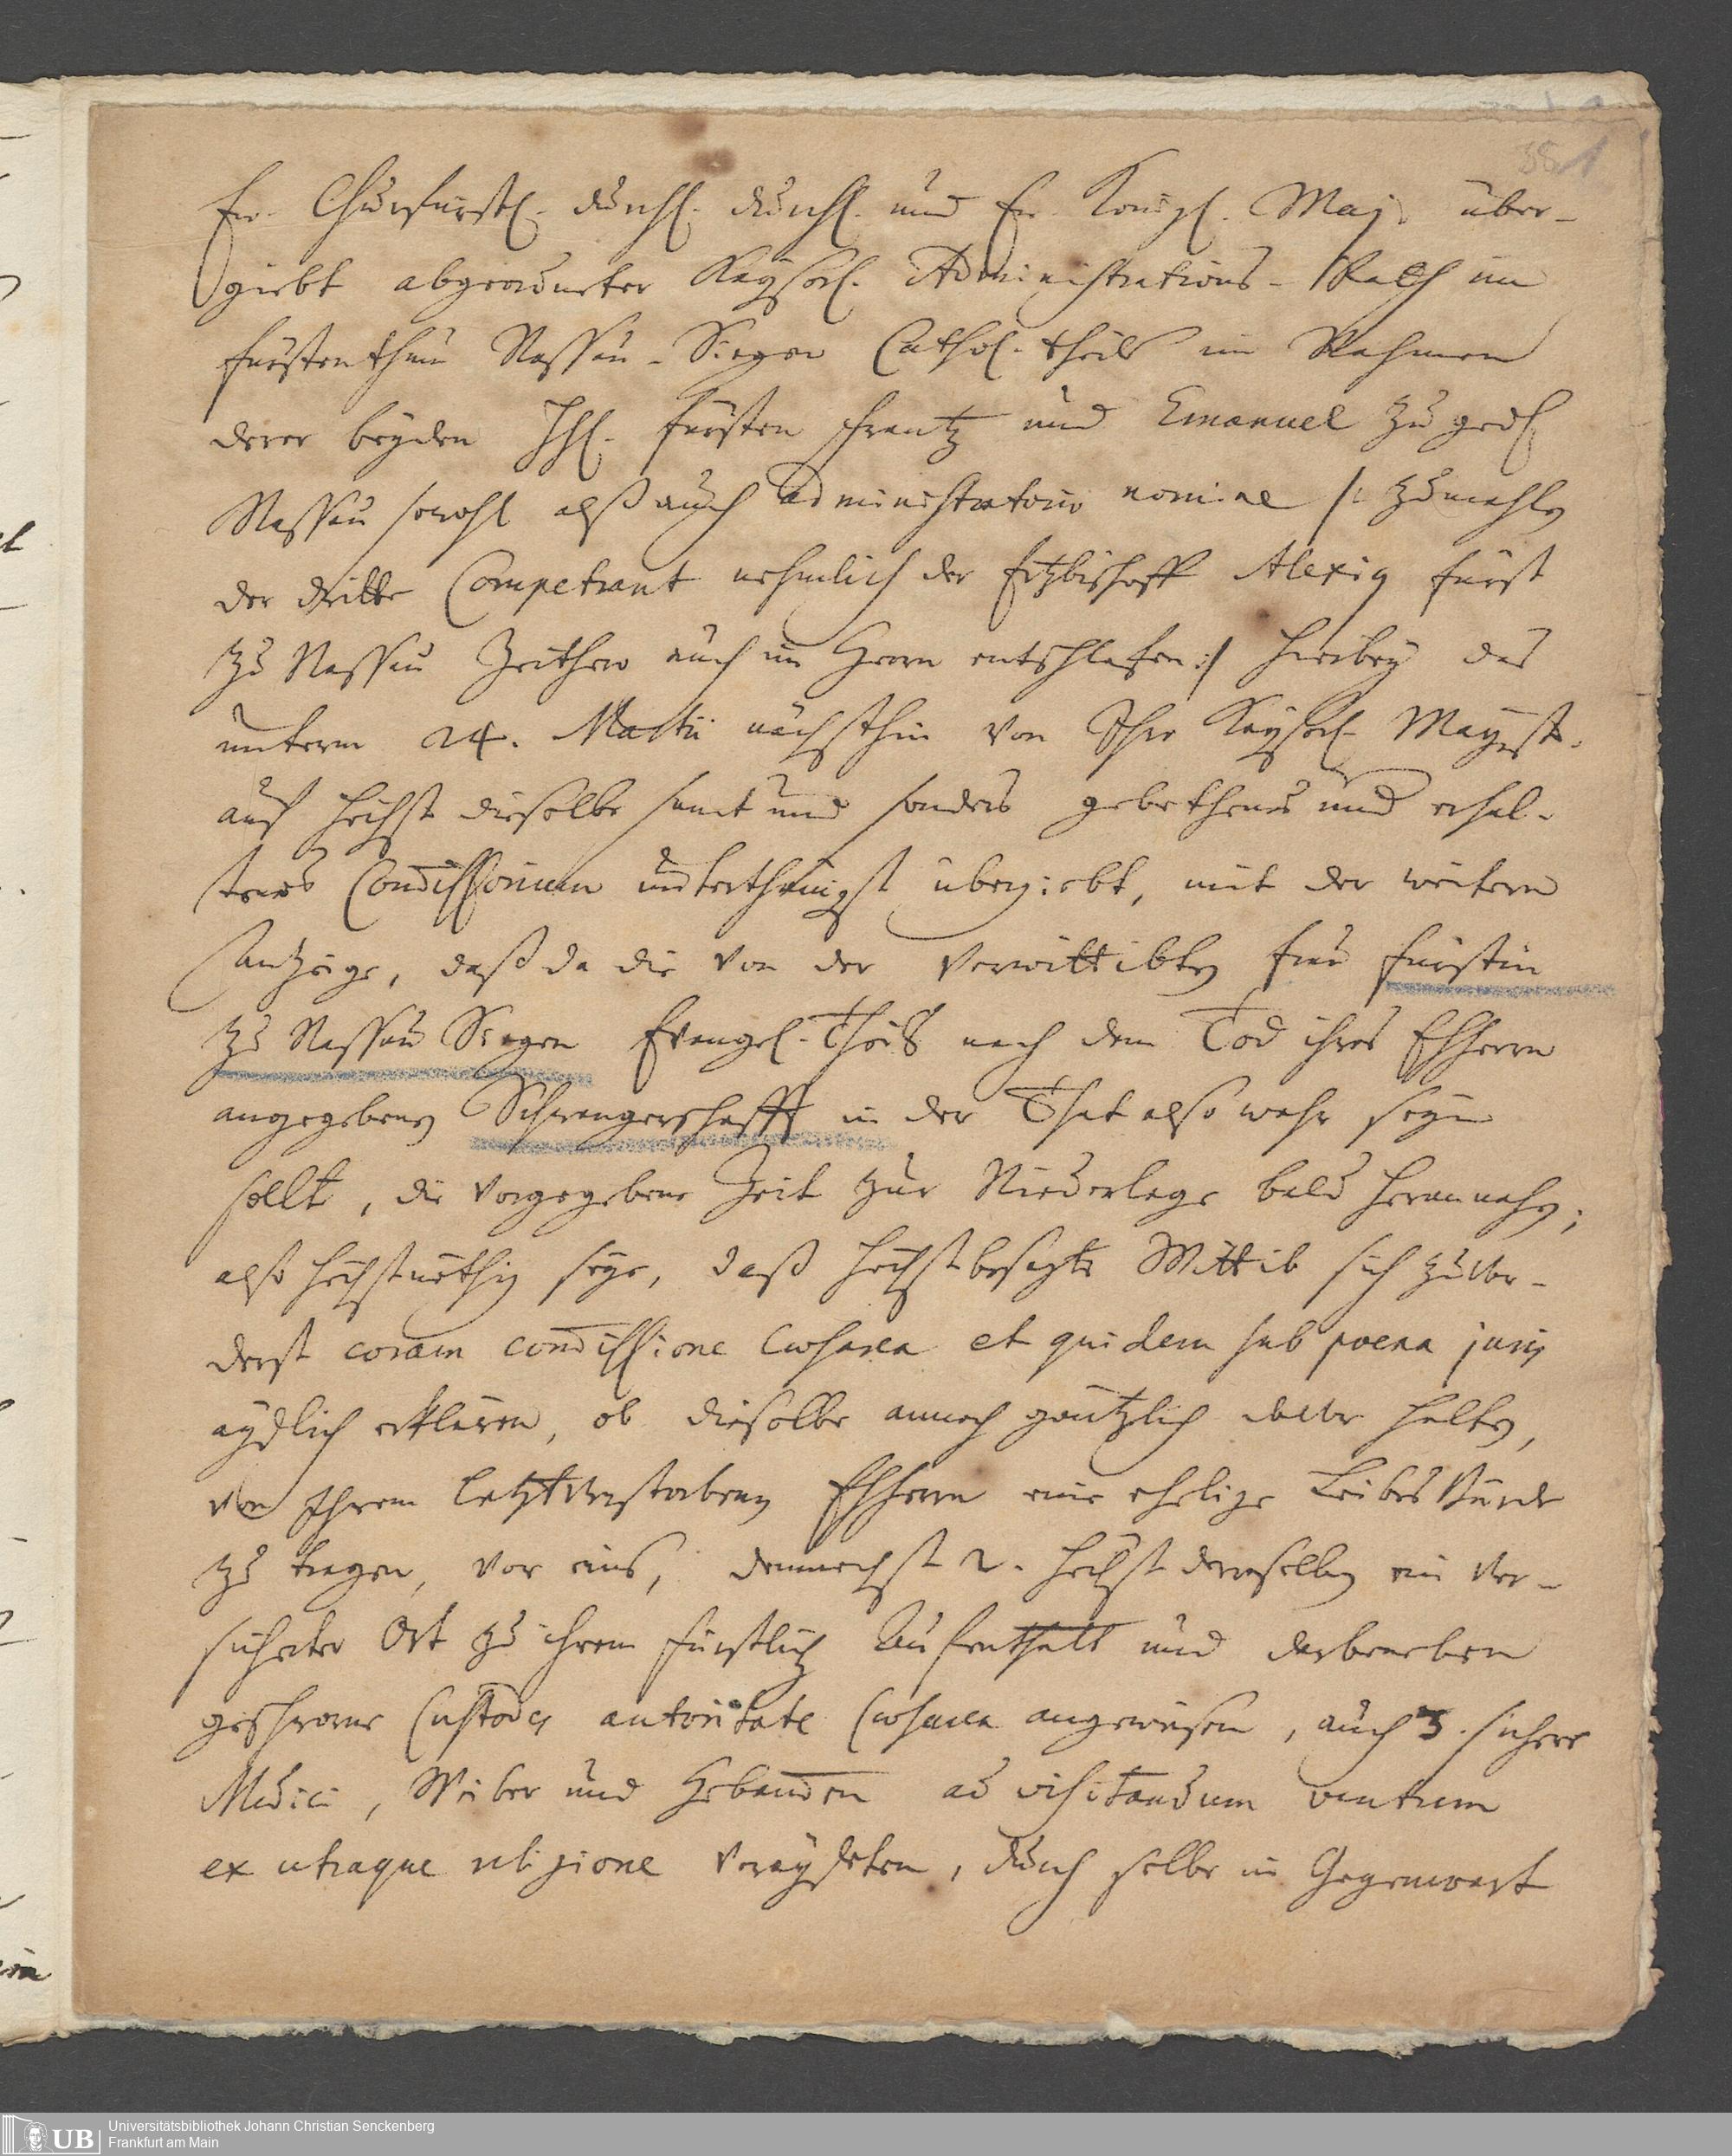 Ew. Churfürstl. durchl. durchl. und Ew. Königl. Maj. über-
giebt abgeordneter Kayserl. Administrations-Rath im
fürstenthum Nassau-Siegen Cathol. theils im Nahmen
derer beyden Hl. fürsten Frantz und Emanuel zu ged.
Nassau sowohl alß auch administratorio nomine /: zumahlen
der dritte Competent nehmlich der Ertzbischoff Alexius fürst
zu Nassau Zeithero auch im Herrn entschlafen :/ hierbey das
unterm 24. Martii nächsthin von Ihro Kayserl. Mayest.
auf höchst dieselbe samt und sonders gebethenes und erhal-
tenes Com̄issorium unterthänigst übergiebt, mit der weitern
Anzeige, daß da die von der verwittibten frau fürstin
zu Nassau Siegen Evangel. Theils nach dem Tod ihres Ehherrn
angegebene Schwangerschafft in der That also wahr seyn
sollte, die vorgegebene Zeit zur Niederlage bald herannahe;
also höchstnöthig seye, daß höchstbesagte Wittib sich zuvor-
derst coram com̄issione Caesarea et quidem sub poena juris
aydlich erklären, ob dieselbe annoch gäntzlich davor halte,
von Ihrem letztverstorbenen Ehherrn eine eheliche Leibes Bürde
zu tragen, vor eins, demnechst 2. höchst deroselben ein ver-
sicherter Ort zu ihrem fürstlichen Aufenthalt und darbeneben
geschworne Custodes autoritate Caesarea angewiesen, auch 3. sichere
Medici, Weiber und Hebam̄en ad visitandum ventrem
ex utraque religione veraydeten, durch selbe in Gegenwart
381
Universitätsbibliothek Johann Christian Senckenberg
Frankfurt am Main
UB